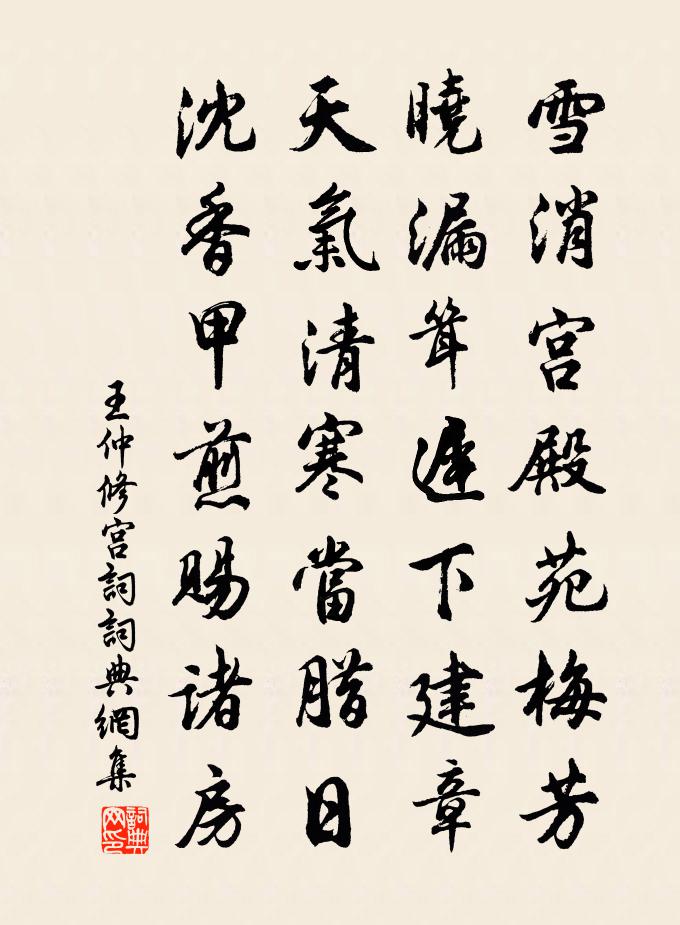 雪消宫殿苑梅芳
曉漏聳遲下建章
天氣清寒當腊日
沈香甲煎賜諸房
王仲修宫詞詞典網集
詞典
网印